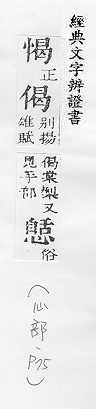 經典文字辨證書
愒正偈別揚雄賦偈棠棃又見手部憩俗
（心部、P75）